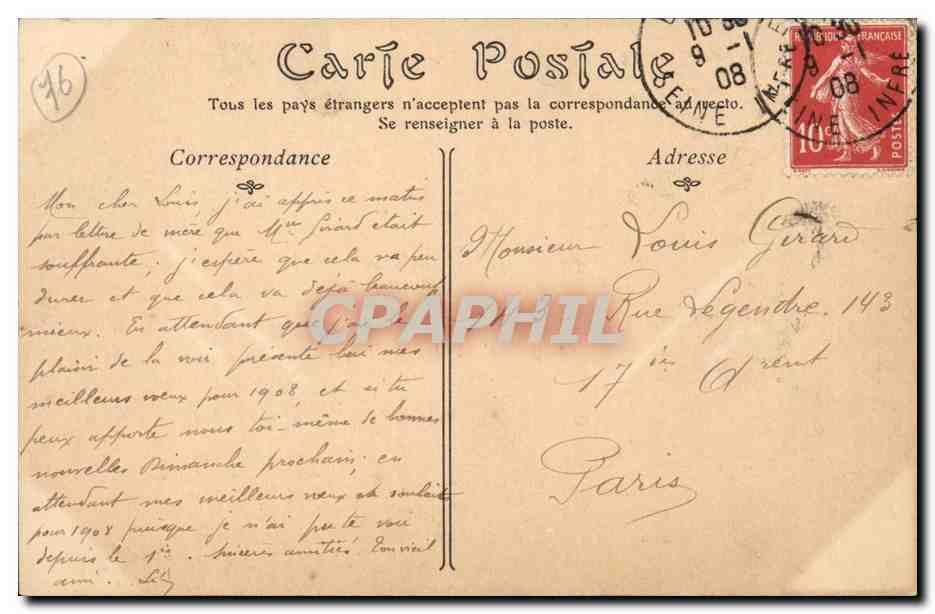 76
Carte Postale
Tous les pays étrangers n'acceptent pas la correspondance au recto.
Se renseigner à la poste.
Correspondance
Mon cher Louis, j'ai appris ce matin
par lettre de mère que Mme Girard était
souffrante, j'espère que cela va peu
durer et que cela va déjà beaucoup
mieux. En attendant que j'ai le
plaisir de la voir présente lui mes
meilleurs voeux pour 1908, et si tu
peux apporte nous toi-même de bonnes
nouvelles Dimanche prochain; en
attendant mes meilleurs voeux de souhait
pour 1908 puisque je n'ai pu te voir
depuis le 1er. Sincères amitiés. Ton vieil
ami.
Adresse
Monsieur Louis Girard
Rue Legendre. 143
17
Paris
REPUBLIQUE FRANÇAISE
10c
POSTES
10
9 -1
08
SEINE INFRE
9 -1
08
INE INFRE
CPAPHIL